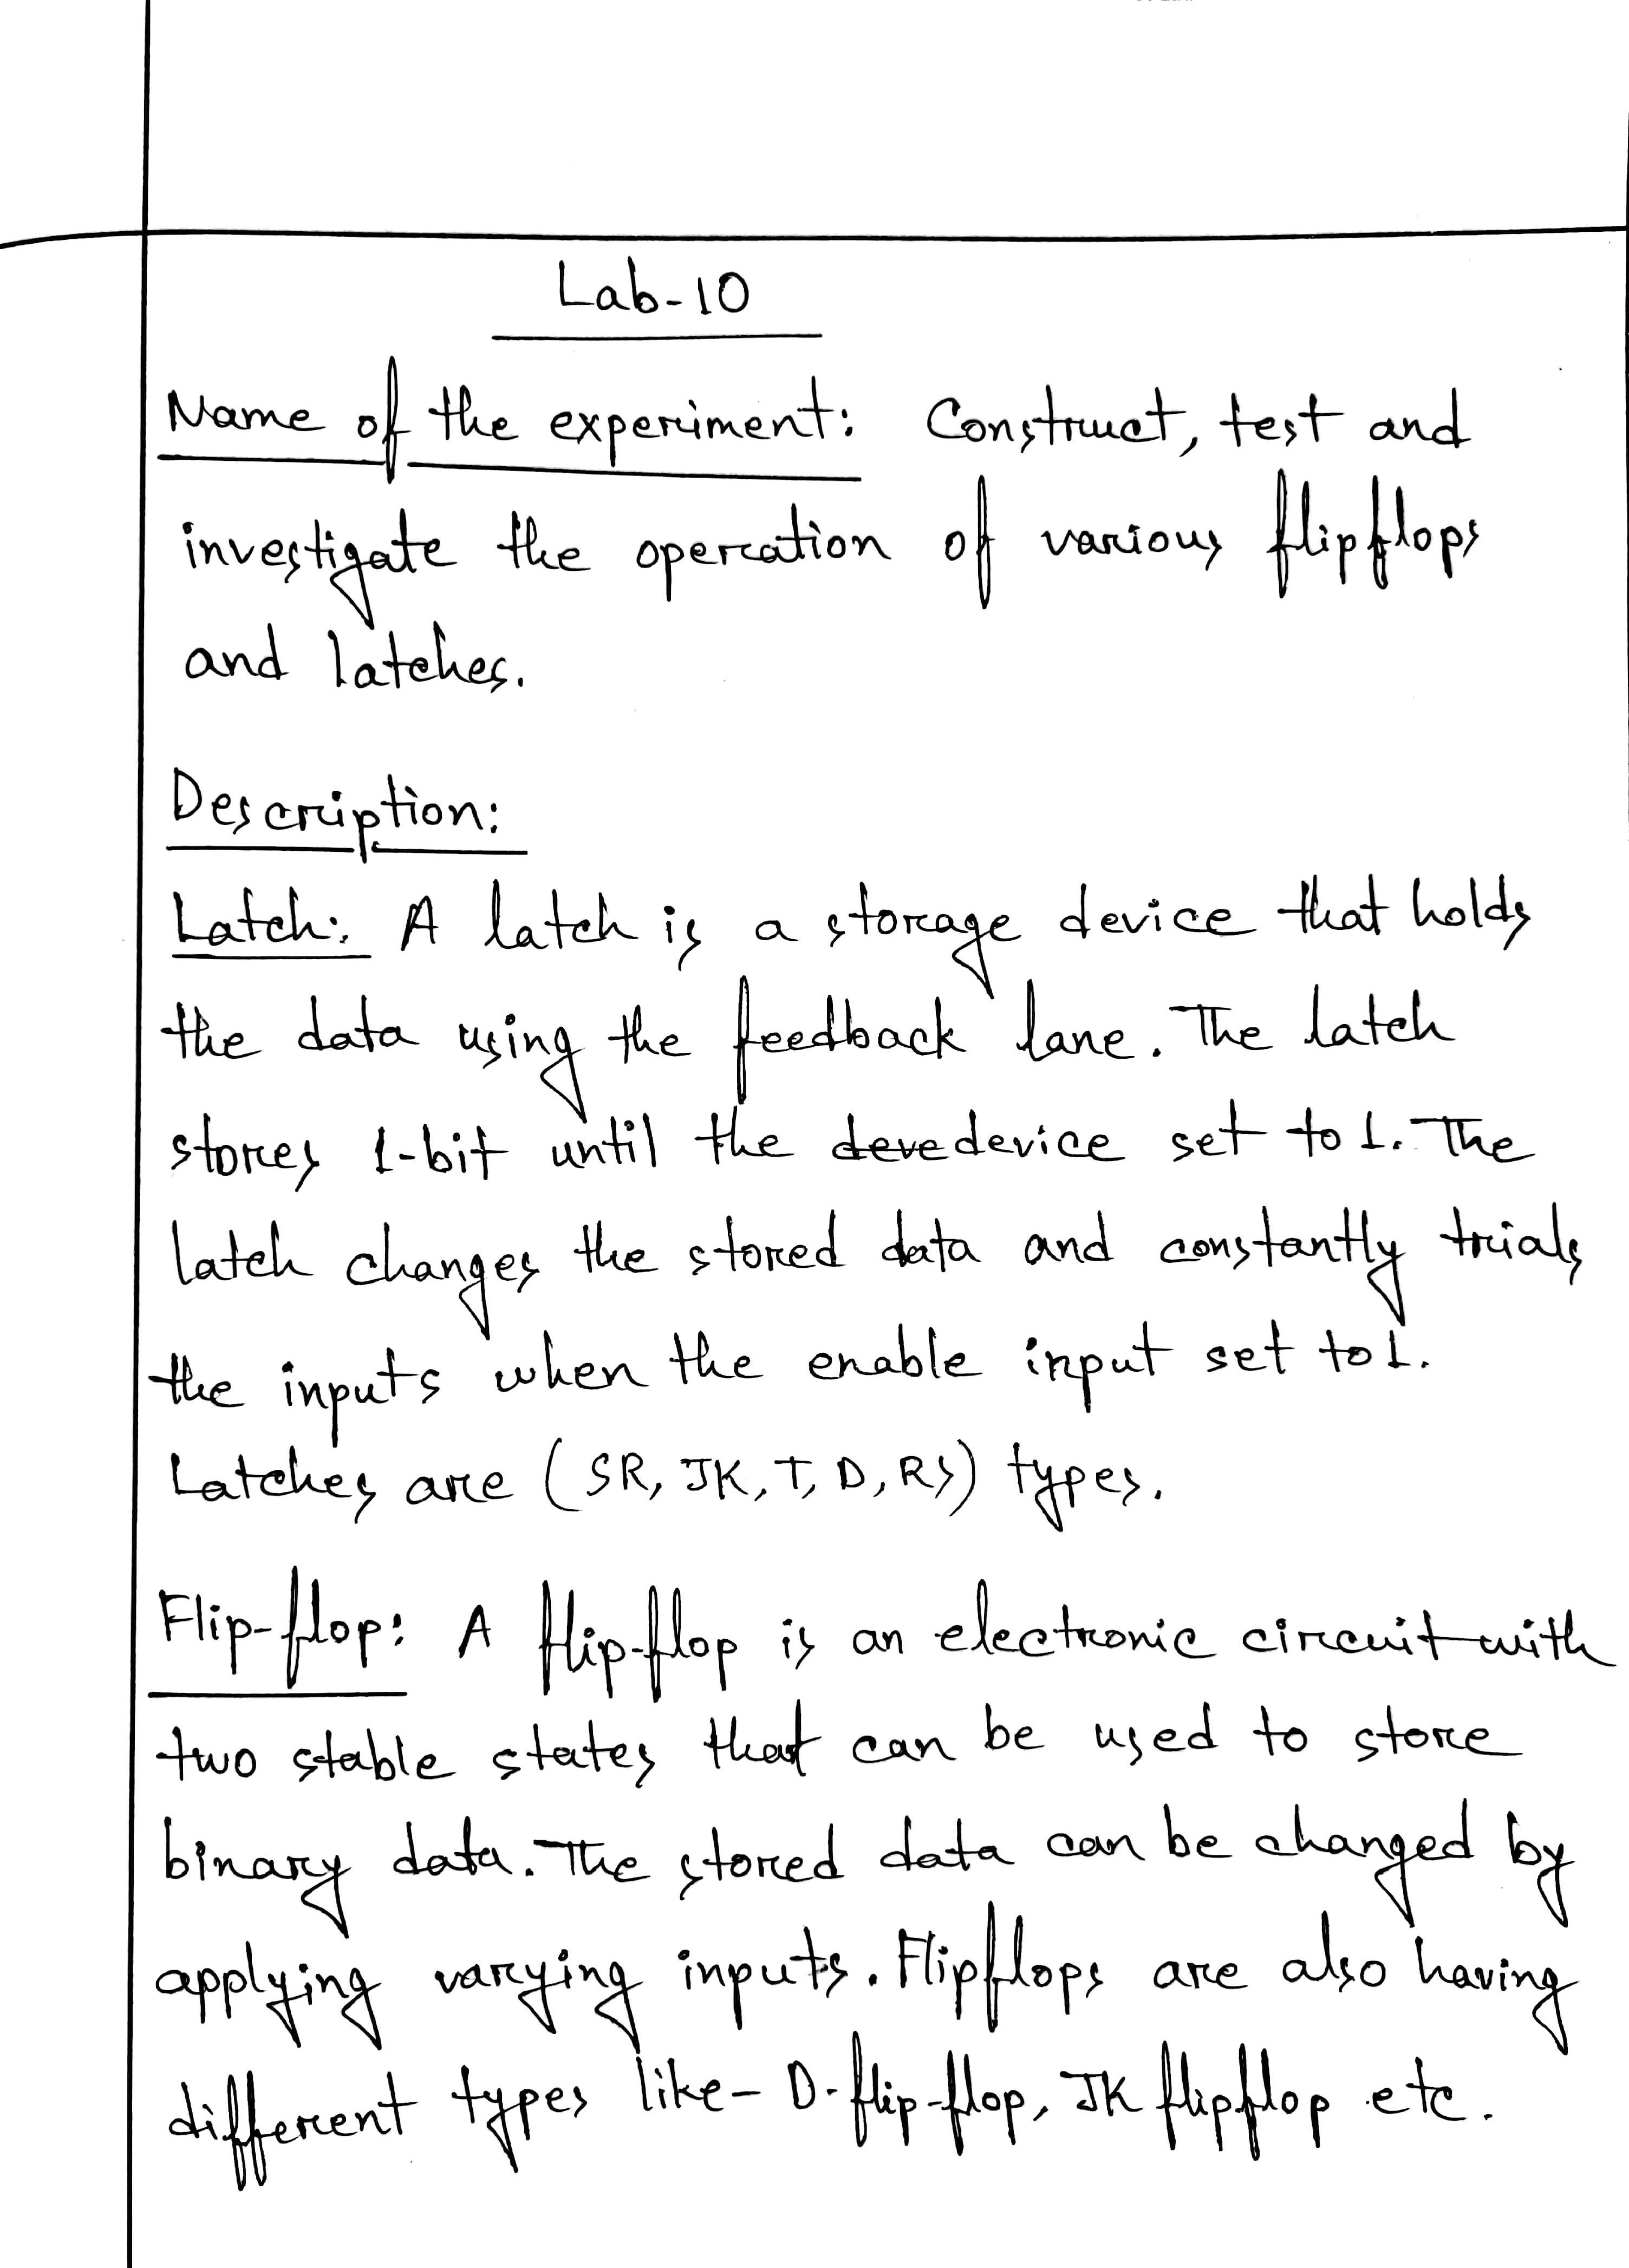 Lab-10
Name of the experiment: Construct, test and
investigate the operation of various flipflops
and latches.
Description:
Latch: A latch is a storage device that holds
the data using the feedback lane. The latch
stores 1-bit until the deve device set to 1. The
latch changes the stored data and constantly trials
the inputs when the enable input set to 1.
Latches are (SR, JK, T, D, RS) types.
Flip-flop: A flip-flop is an electronic circuit with
two stable states that can be used to store
binary data. The stored data can be changed by
applying varying inputs. Flipflops are also having
different types like- D-flip-flop, JK flipflop etc.